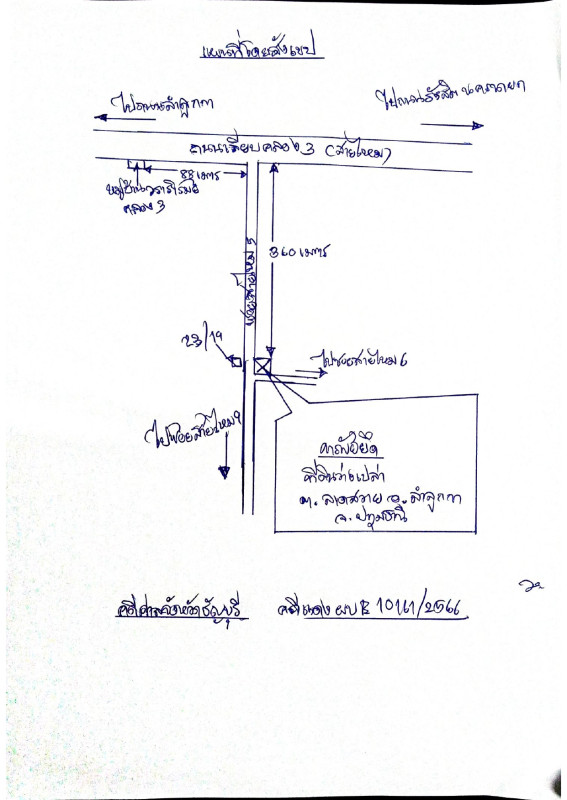 แผนที่โดยสังเขป
ไปถนนลำลูกกา
ไปถนนรังสิต นครนายก
ถนนเลียบคลอง 3 (สายไหม)
88 เมตร
หมู่บ้าน
คลอง 3
360 เมตร
ซอยสายไหม
23/19
ไปซอยสายไหม 6
ไปซอยสายไหม
ทรัพย์ยึด
ที่ดินว่างเปล่า
ต. ลาดสวาย อ. ลำลูกกา
จ. ปทุมธานี
คดีศาลจังหวัดธัญบุรี คดีแดง ผบE